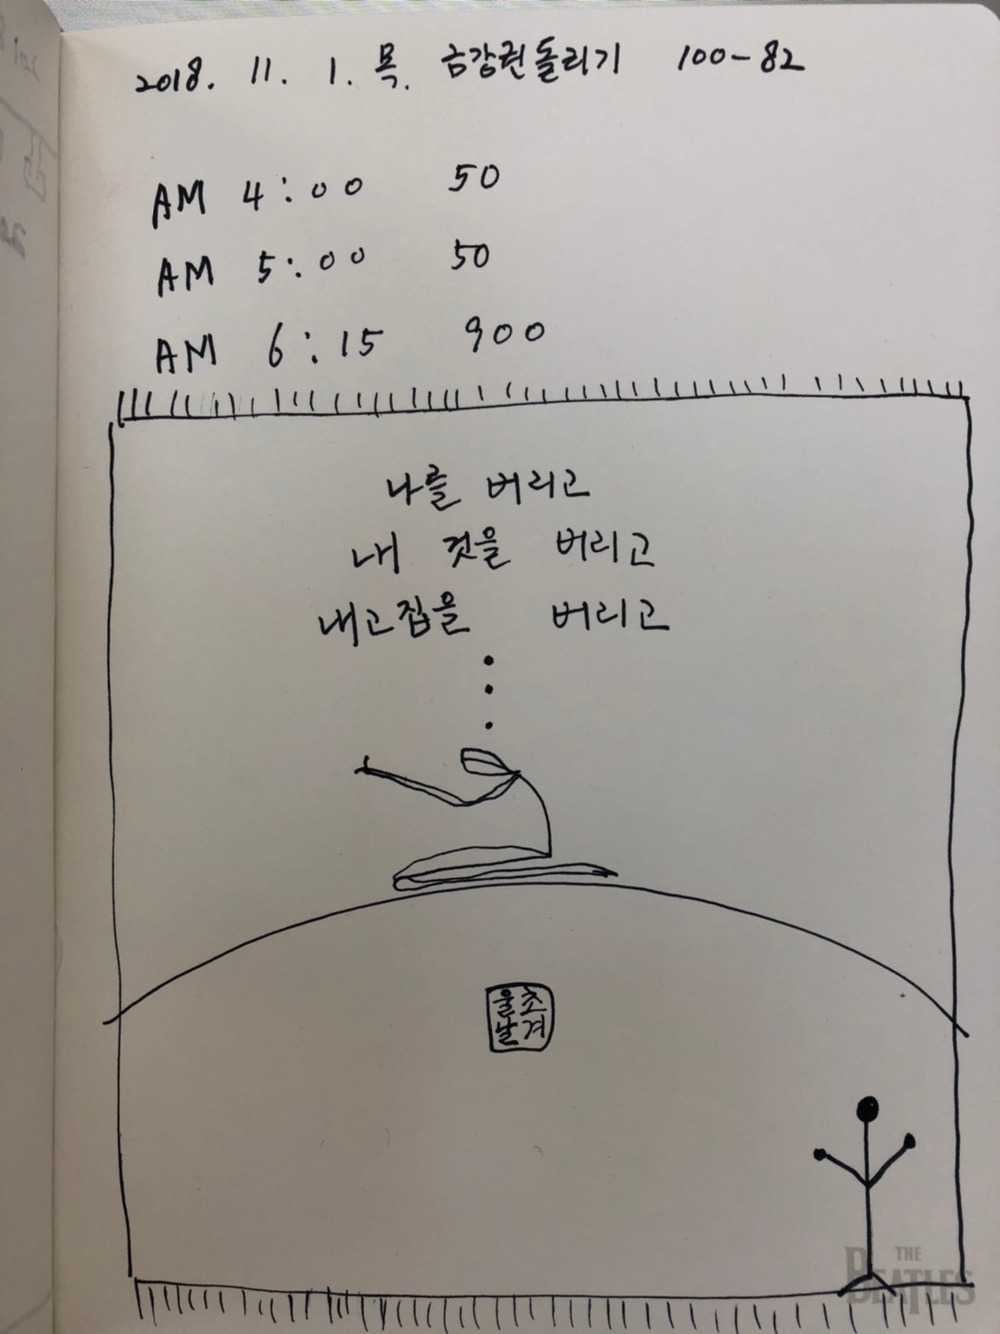 2018. 11. 1. 목. 금강권돌리기 100-82
AM 4:00 50
AM 5:00 50
AM 6:15 900
나를 버리고
내 것을 버리고
내고집을 버리고
초겨
울날
THE
BEATLES